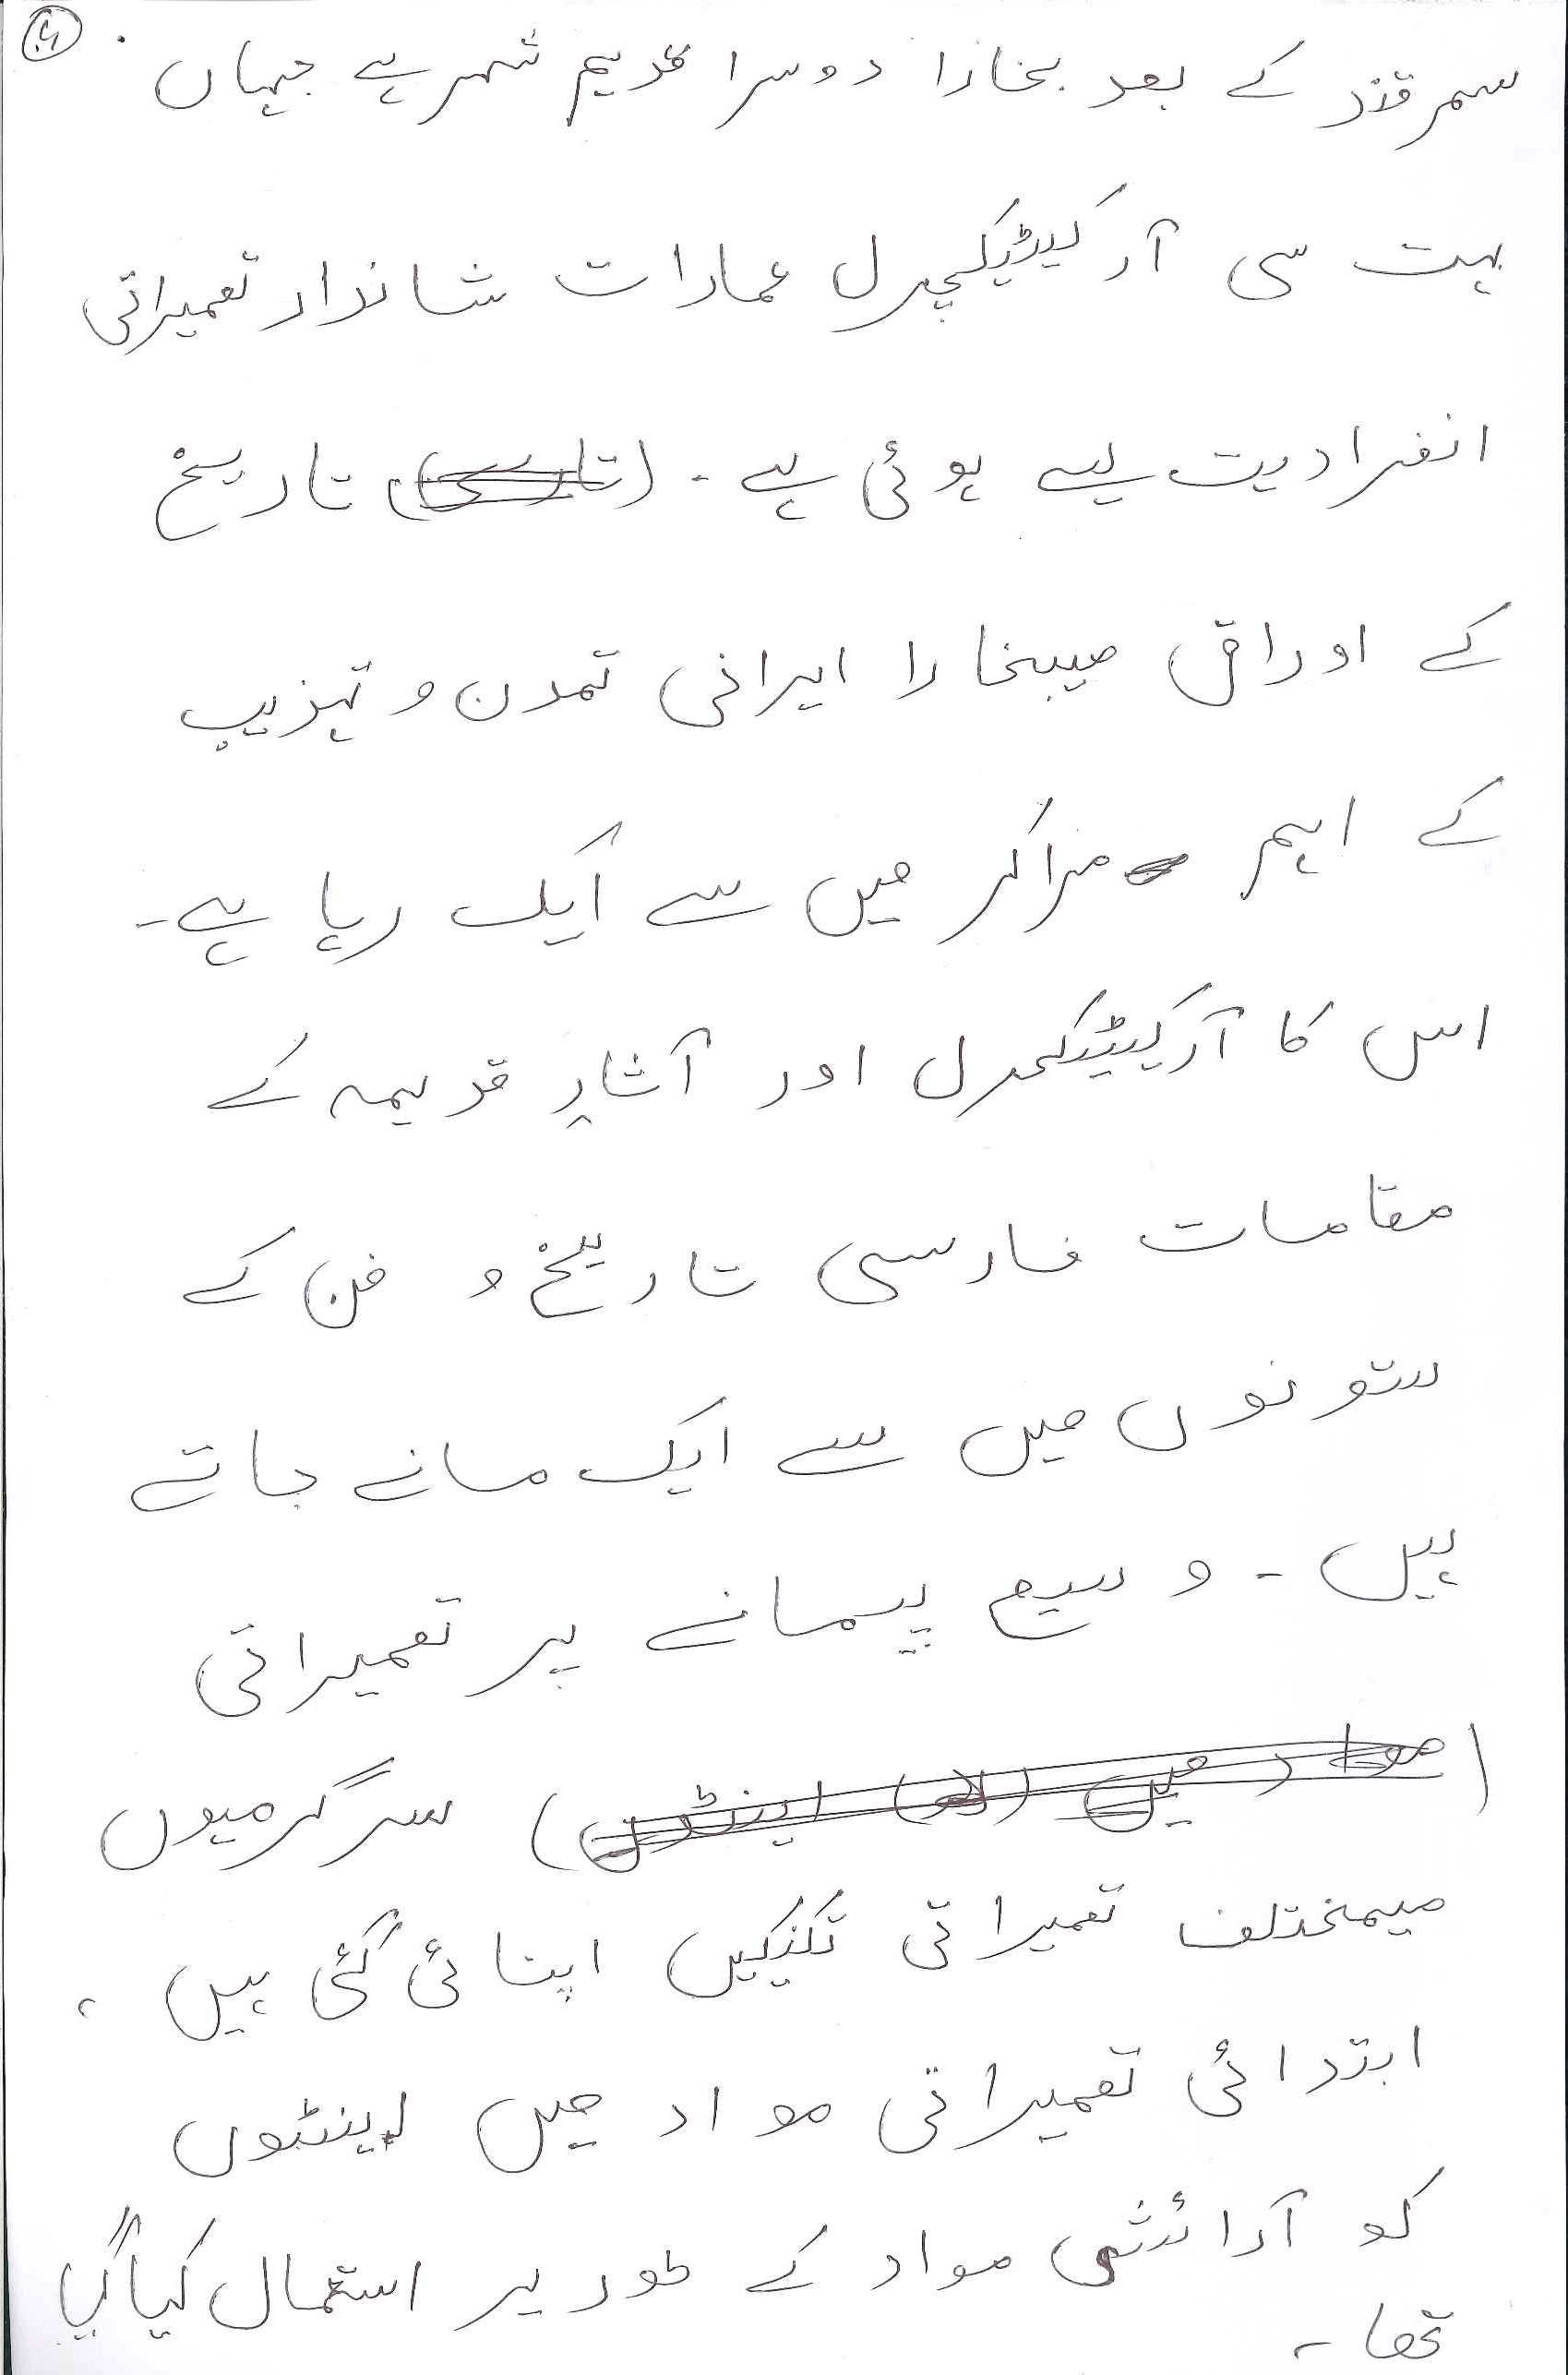 سمرقند کے بعد بخارا دوسرا قدیم شہر ہے جہاں
بہت سی آرکیٹیکچرل عمارات شاندار تعمیراتی
انفرادیت لیے ہوئی ہے ۔ تاریخ
کے اوراق میںبخارا ایرانی تمدن و تہزیب
کے اہم مراکز میں سے ایک رہا ہے ۔
اس کا آرکیٹیکچرل اور آثارِ قدیمہ کے
مقامات فارسی تاریخ و فن کے
ستونوں میں سے ایک مانے جاتے
ہیں ۔ وسیع پیمانے پر تعمیراتی
(مواد میں () اینٹوں) سرگرمیوں
میںمختلف تعمیراتی تکنیکیں اپنائی گئی ہیں ،
ابتدائی تعمیراتی مواد میں اینٹوں
کو آرائشی مواد کے طور پر استعمال کیا گیا
تھا ۔